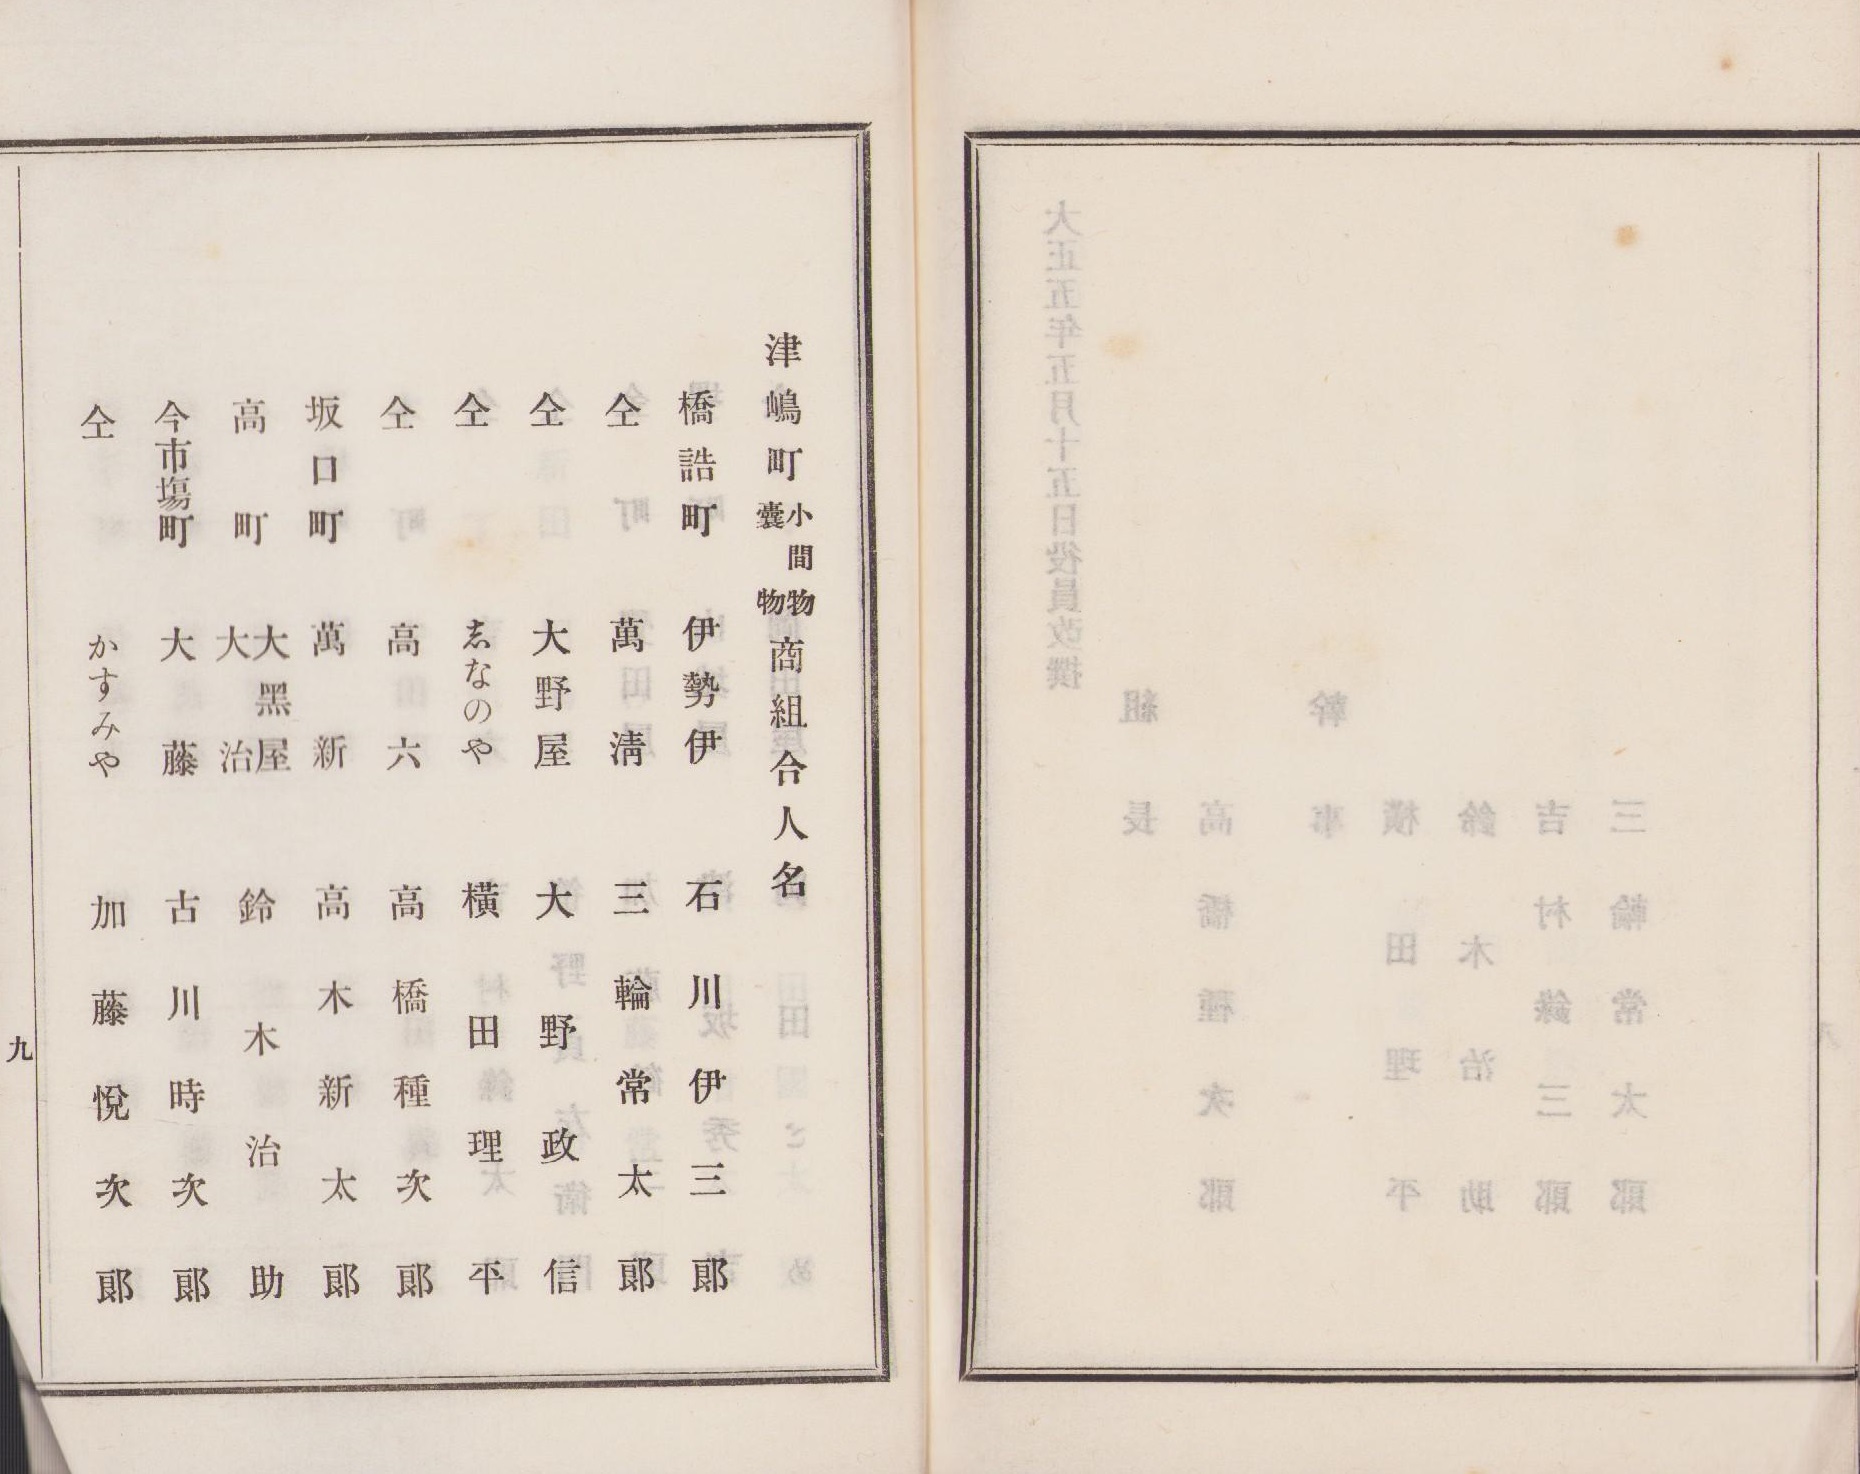 津嶋町小間物囊物商組合人名
橋詰町 伊勢伊 石川伊三郎
仝 萬淸 三輪常太郎
仝 大野屋 大野政信
仝 志なのや 橫田理平
仝 高六 高橋種次郎
坂口町 萬新 高木新太郎
高町 大黑屋大治 鈴木治助
今市塲町 大藤 古川時次郎
仝 かすみや 加藤悅次郎
九